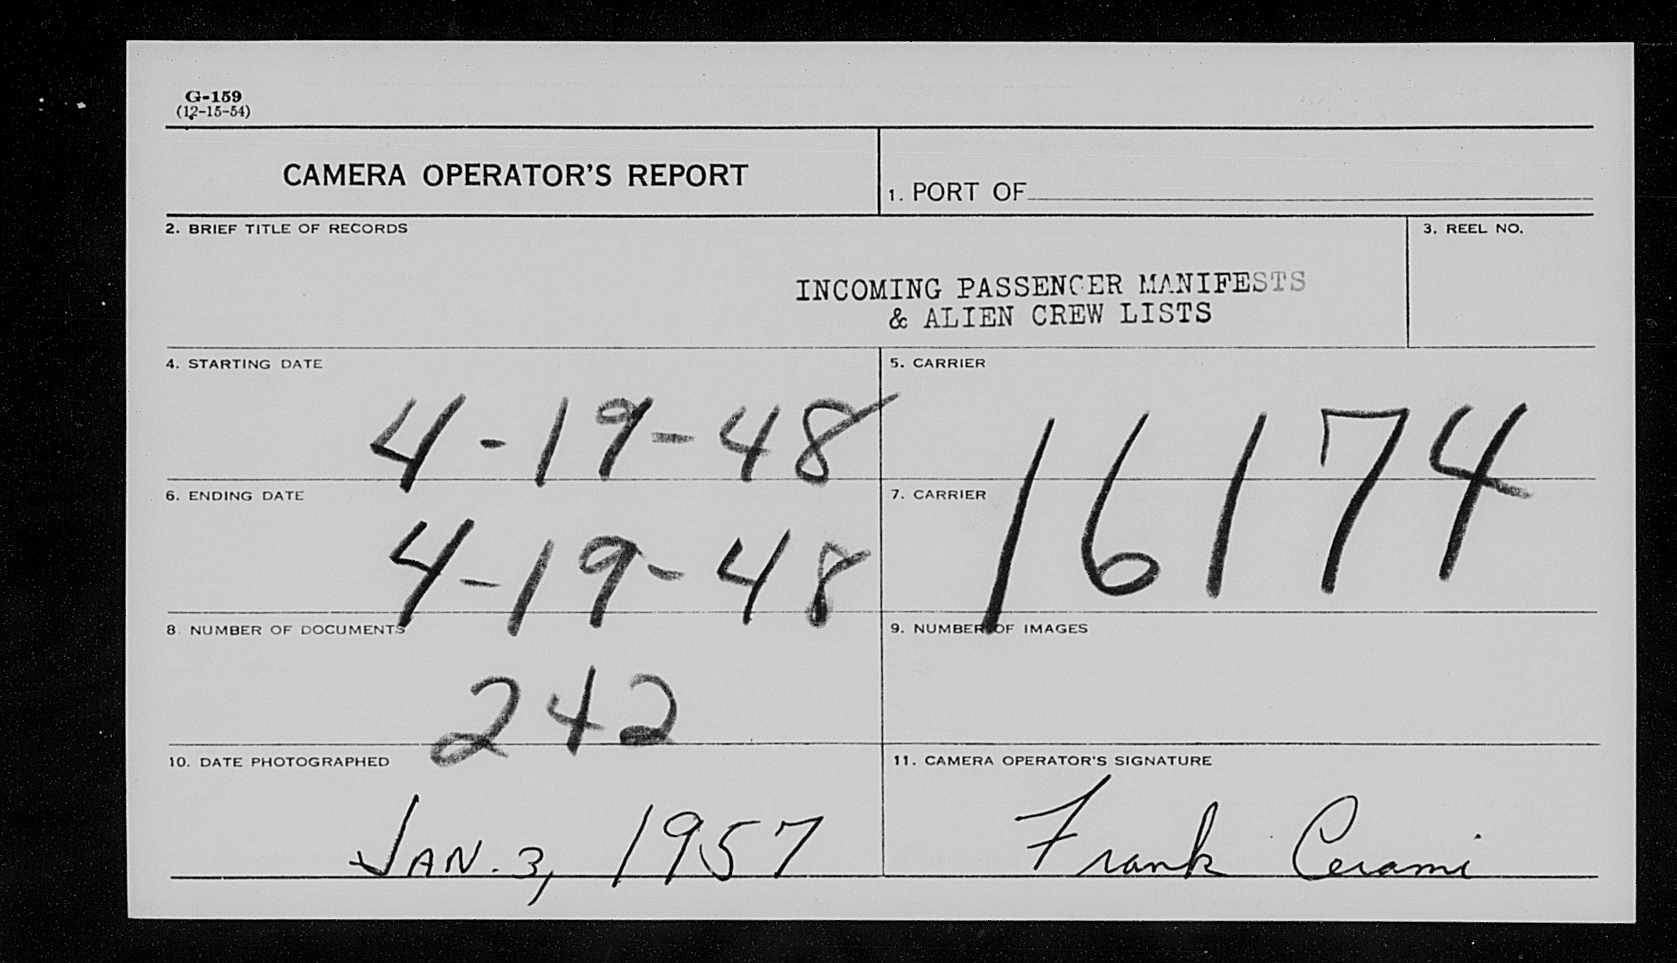 G-159
(12-15-54)
CAMERA OPERATOR'S REPORT
1. PORT OF
2. BRIEF TITLE OF RECORDS
3. REEL NO.
INCOMING PASSENGER MANIFESTS
& ALIEN CREW LISTS
4. STARTING DATE
4-19-48
5. CARRIER
16174
6. ENDING DATE
4-19-48
7. CARRIER
8. NUMBER OF DOCUMENTS
242
9. NUMBER OF IMAGES
10. DATE PHOTOGRAPHED
JAN. 3, 1957
11. CAMERA OPERATOR'S SIGNATURE
Frank Cerami